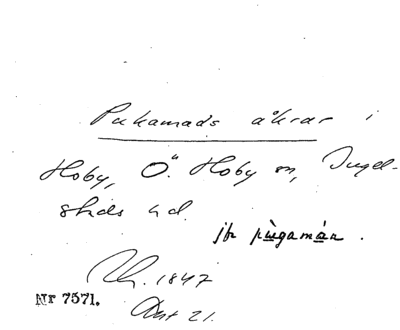 Pukamads åkrar i
Hoby, Ö. Hoby sn, Ingel-
stads hd.
jfr pùgamàn.
1847
Nr 7571.
Akt 21.